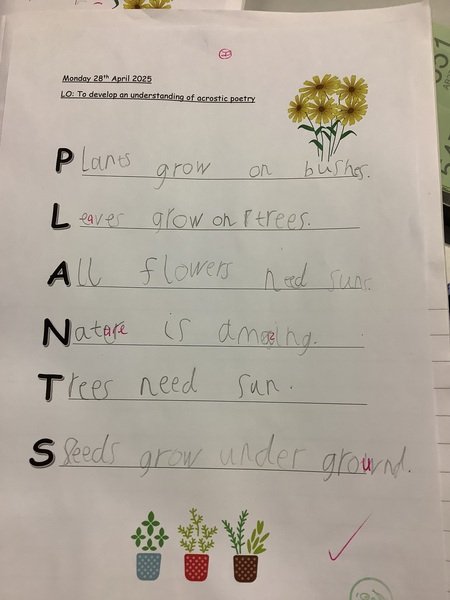 Monday 28th April 2025
LO: To develop an understanding of acrostic poetry
Plants grow on bushes.
Leaves grow on trees.
All flowers need sun.
Nature is amazing.
Trees need sun.
Seeds grow under ground.